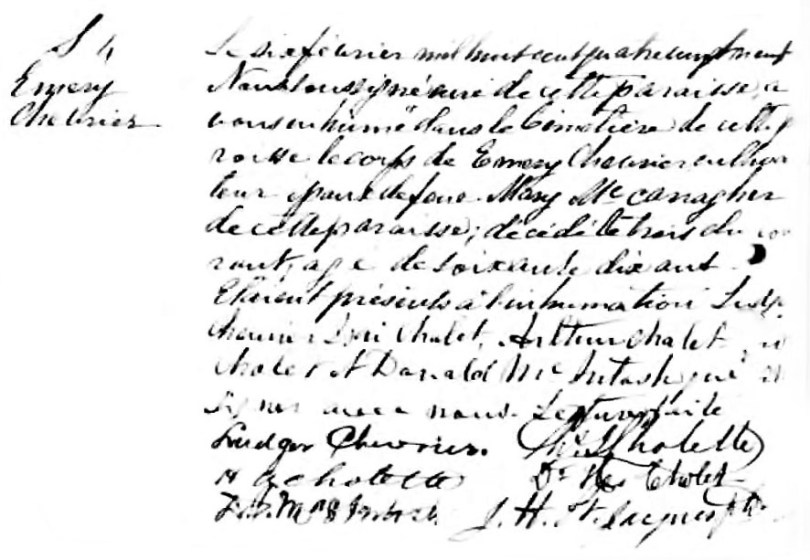 S 4
Emery
Chevrier
Le six février mil huit cent quatre vingt neuf
Nous soussigné curé de cette paroisse, a
vons inhumé dans le Cimetière de cette p
roisse le corps de Emery Chevrier cultiva
teur époux de feue Mary McCanagher
de cette paroisse, décédé le trois du cou
rant, agé de soixante dix ans.
Etaient présents à l'inhumation Ludg
Chevrier, Cholet, Arthur Cholet
Cholet et Donald McIntosh qui
signer avec nous. Lecture faite
Ludger Chevrier. Cholette
H Cholette Dr Cholet
J. H. St. Jacques ptr